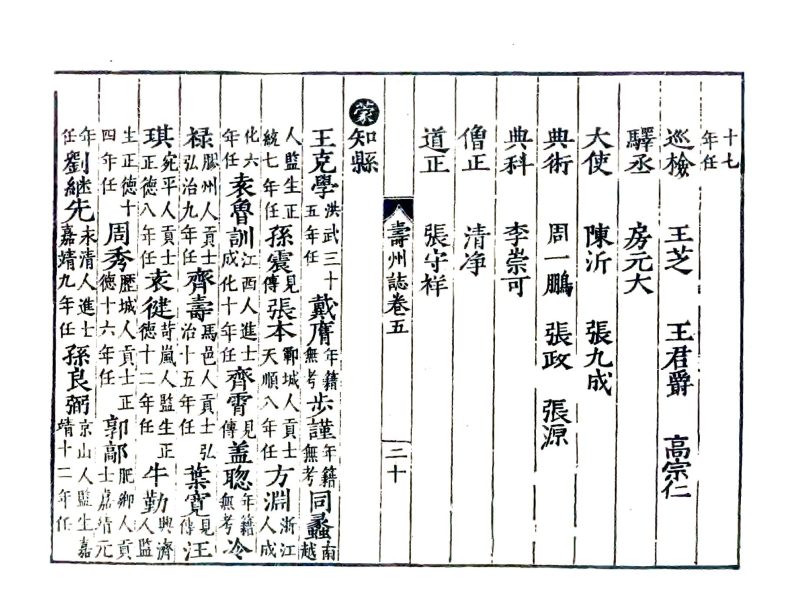 十七年任
巡檢 王芝 王君爵 高宗仁
驛丞 房元大
大使 陳沂 張九成
典術 周一鵬 張政 張源
典科 李崇可
僧正 清净
道正 張守祥
壽州誌卷五 二十
蒙知縣
王克學洪武三十五年任 戴膺年籍無考 步謹年籍無考 同蠡南越
人監生正統七年任 孫震見傳 張本鄆城人貢士天順八年任 方淵浙江人成
化六年任 袁魯訓江西人進士成化十年任 齊霄見傳 盖聰年籍無考 冷
禄膠州人貢士弘治九年任 齊壽馬邑人貢士弘治十五年任 葉寛見傳 汪
琪宛平人貢士正德八年任 袁健苛嵐人監生正德十二年任 牛勤興濟人監
生正德十四年任 周秀歷城人貢士正德十六年任 郭鄗肥鄉人貢士嘉靖元
年任 劉継先永清人進士嘉靖九年任 孫良弼京山人監生嘉靖十二年任